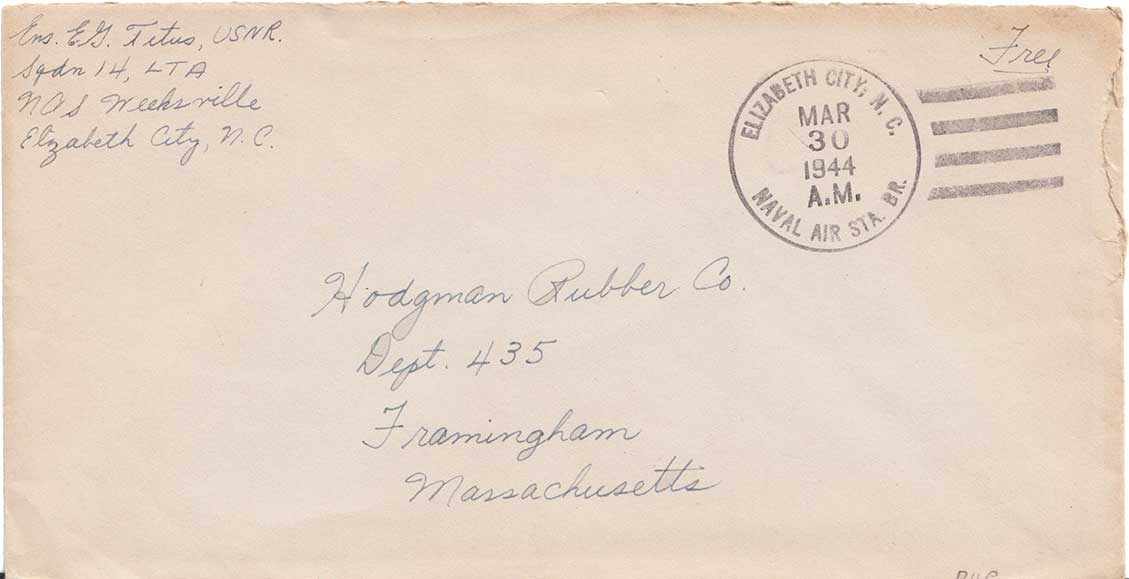 Ens. E.G. Titus, USNR.
Sqdn 14, LTA
NAS Weeksville
Elizabeth City, N.C.
Free
ELIZABETH CITY, N. C.
MAR
30
1944
A.M.
NAVAL AIR STA. BR.
Hodgman Rubber Co.
Dept. 435
Framingham
Massachusetts